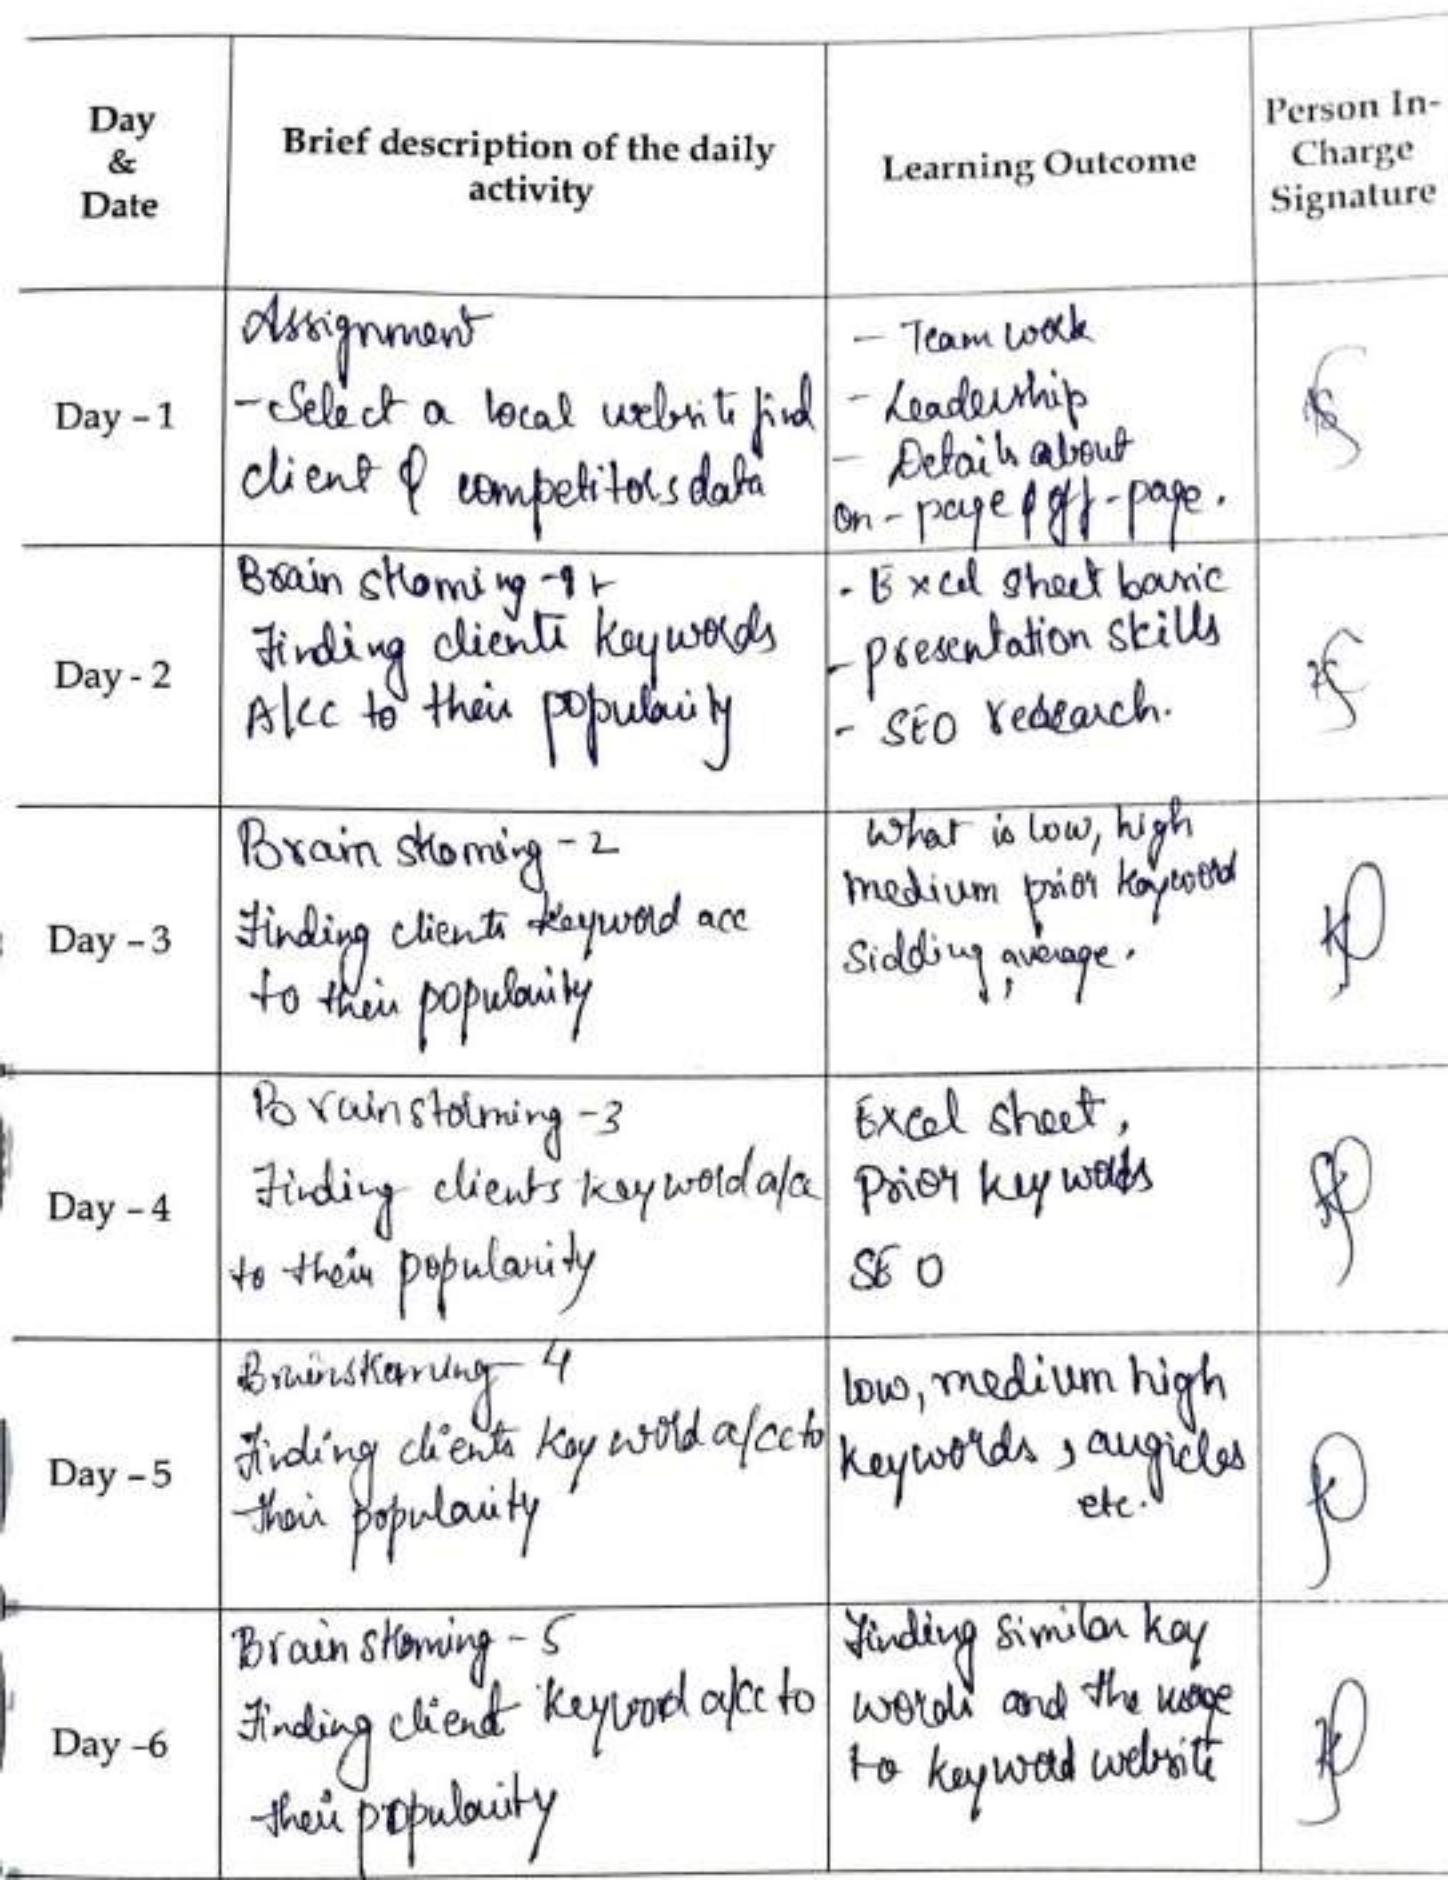 Day
&
Date
Brief description of the daily
activity
Learning Outcome
Person In-
Charge
Signature
Day – 1
Assignment
- Select a local website find
client & competitors data
- Team work
- Leadership
- Details about
on - page & off - page.
Day - 2
Brain stoming -1
Finding clients keywords
A/cc to their popularity
- Excel sheet basic
- presentation skills
- SEO research.
Day – 3
Brain stoming - 2
Finding clients keyword acc
to their popularity
What is low, high
medium prior keyword
average.
Day – 4
Brainstorming - 3
Finding clients keyword a/cc
to their popularity
Excel sheet,
prior keywords
SEO
Day – 5
4
Finding clients keyword a/cc to
their popularity
low, medium high
keywords,
etc.
Day –6
Brain stoming - 5
Finding client keyword a/cc to
their popularity
Finding similar key
words and the
to keyword website